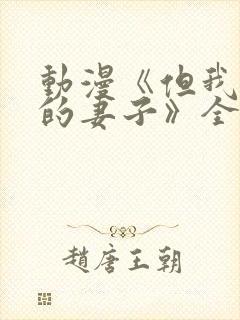 動漫《但我
的妻子》全
趙唐王朝